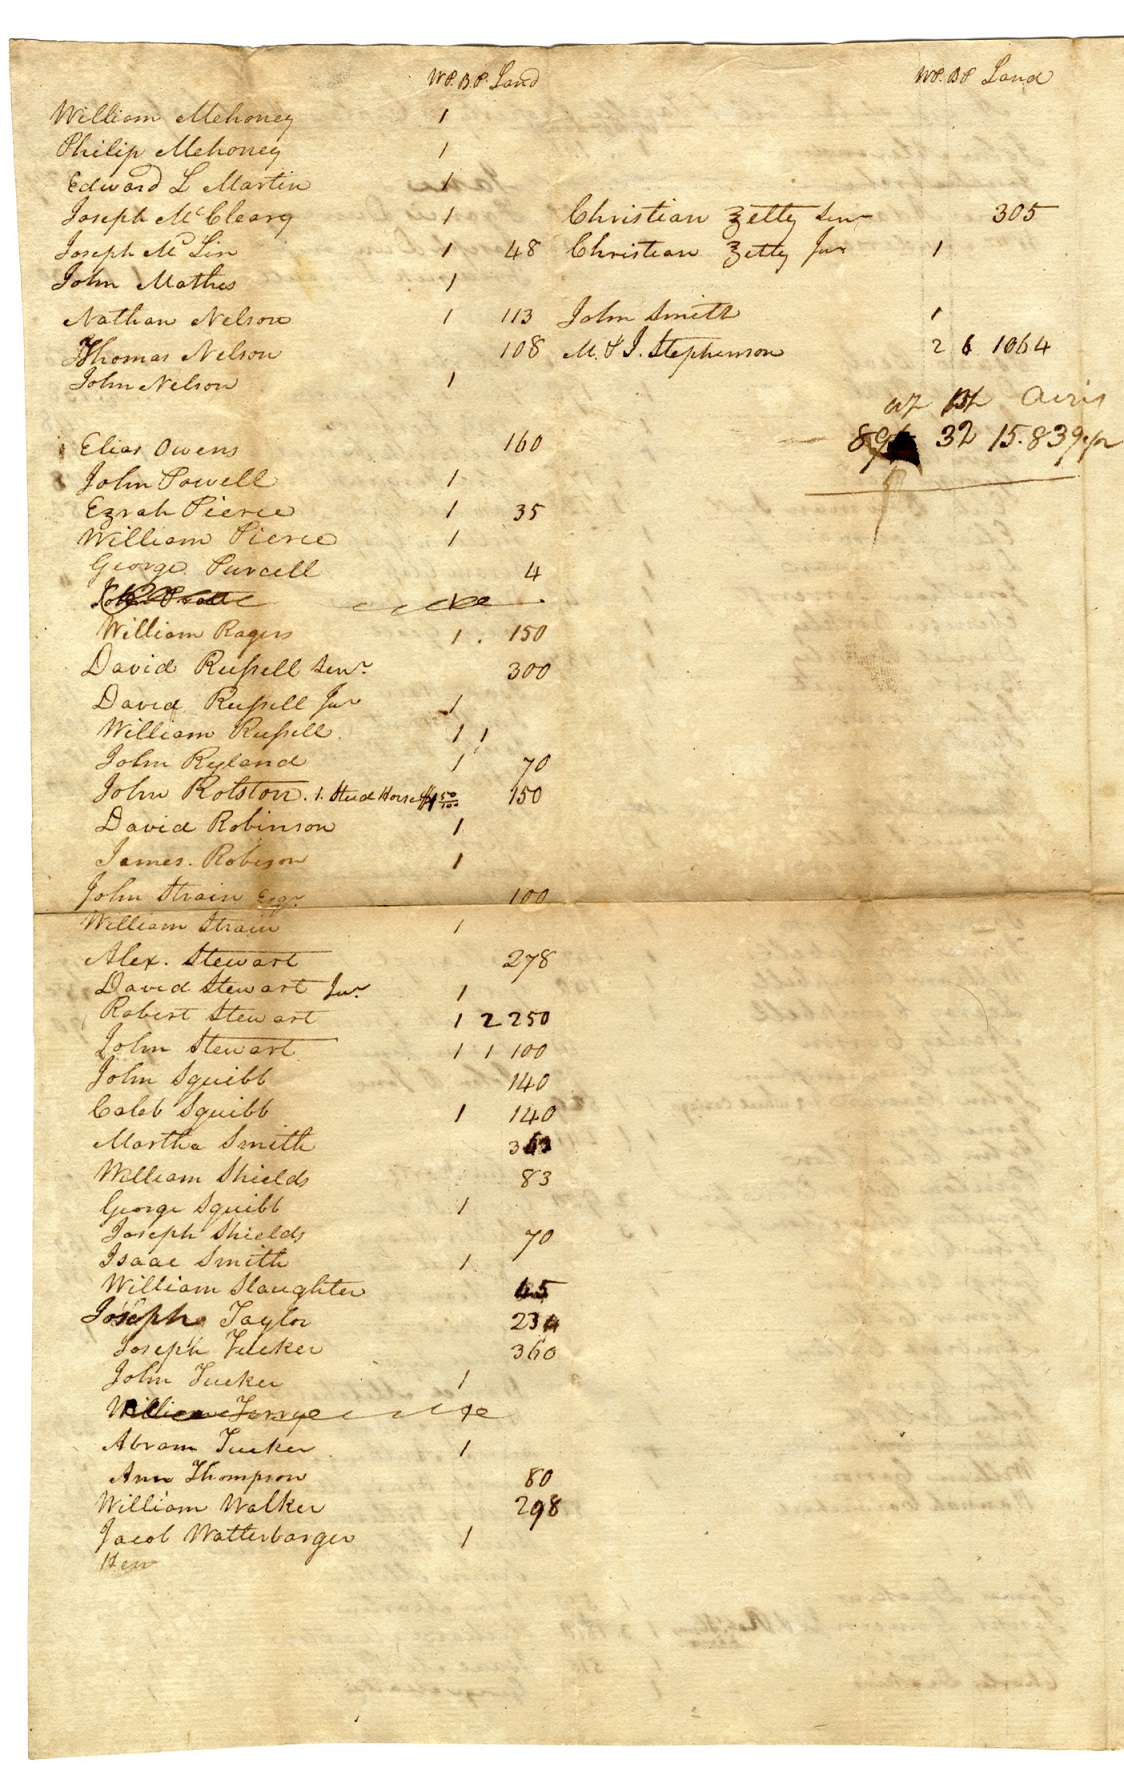 W P. B. P. Land
William Mehoney 1
Philip Mehoney 1
Edward L Martin 1
Joseph McCleary 1
Joseph Mc Lin 1 48
John Mathes 1
Nathan Nelson 1 113
Thomas Nelson 108
John Nelson 1
Elias Owens 160
John Powell 1
Ezrah Pierce 1 35
William Pierce 1
George Purcell 4
John
William Ragers 1 . 150
David Russell Senr. 300
David Russell Jur 1
William Russell 1 1
John Ryland 1 70
John Rolston. 1. Stud Horse $1 50/100 150
David Robinson 1
James. Robeson 1
John Strain Esqr. 100
William Strain 1
Alex. Stewart 278
David Stewart Jur. 1
Robert Stewart 1 2 250
John Stewart 1 1 100
John Squibb 140
Caleb Squibb 1 140
Martha Smith
William Shields 83
George Squibb 1
Joseph Shields 70
Isaac Smith 1
William Slaughter 45
Joseph Taylor 234
Joseph Tucker 360
John Tucker 1
William
Abram Tucker 1
Ann Thompson 80
William Walker 298
Jacob Watterbarger 1
Hen
WP. BP Land
Christian Zetty Senr 305
Christian Zetty Jur 1
John Smith 1
M. & J. Stephenson 2 6 1064
wp bp Acris
32 15.839